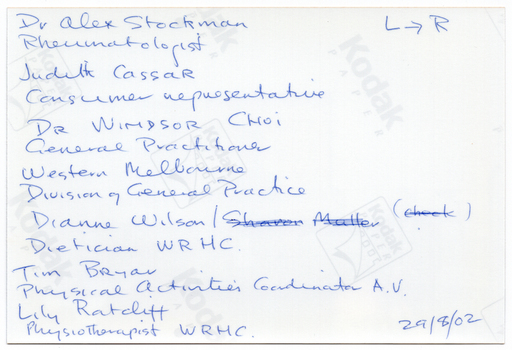 Dr Alex Stockman L → R
Rheumatologist
Judith Cassar
Consumer representative
DR WINDSOR CHOI
General Practitioner
Western Melbourne
Division of General Practice
Dianne Wilson / Sharon Muller (check)
Dietician WRHC.
Tim Bryar
Physical Activities Coordinator A.V.
Lily Ratcliff
Physiotherapist WRHC.
29/8/02
Kodak
Kodak
Kodak
Kodak